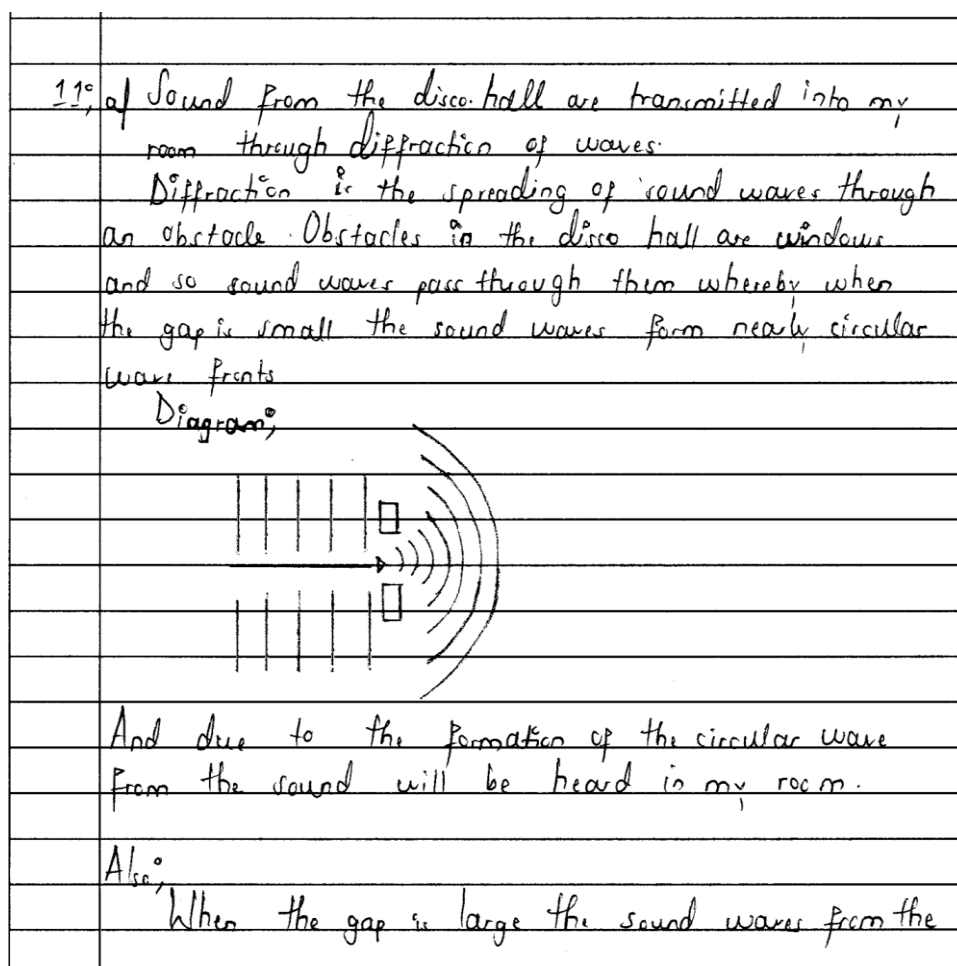 11; a) Sound from the disco hall are transmitted into my
room through diffraction of waves.
Diffraction is the spreading of sound waves through
an obstacle. Obstacles in the disco hall are windows
and so sound waves pass through them whereby when
the gap is small the sound waves form nearly circular
wave fronts
Diagram;
And due to the formation of the circular wave
from the sound will be heard in my room.
Also;
When the gap is large the sound waves from the